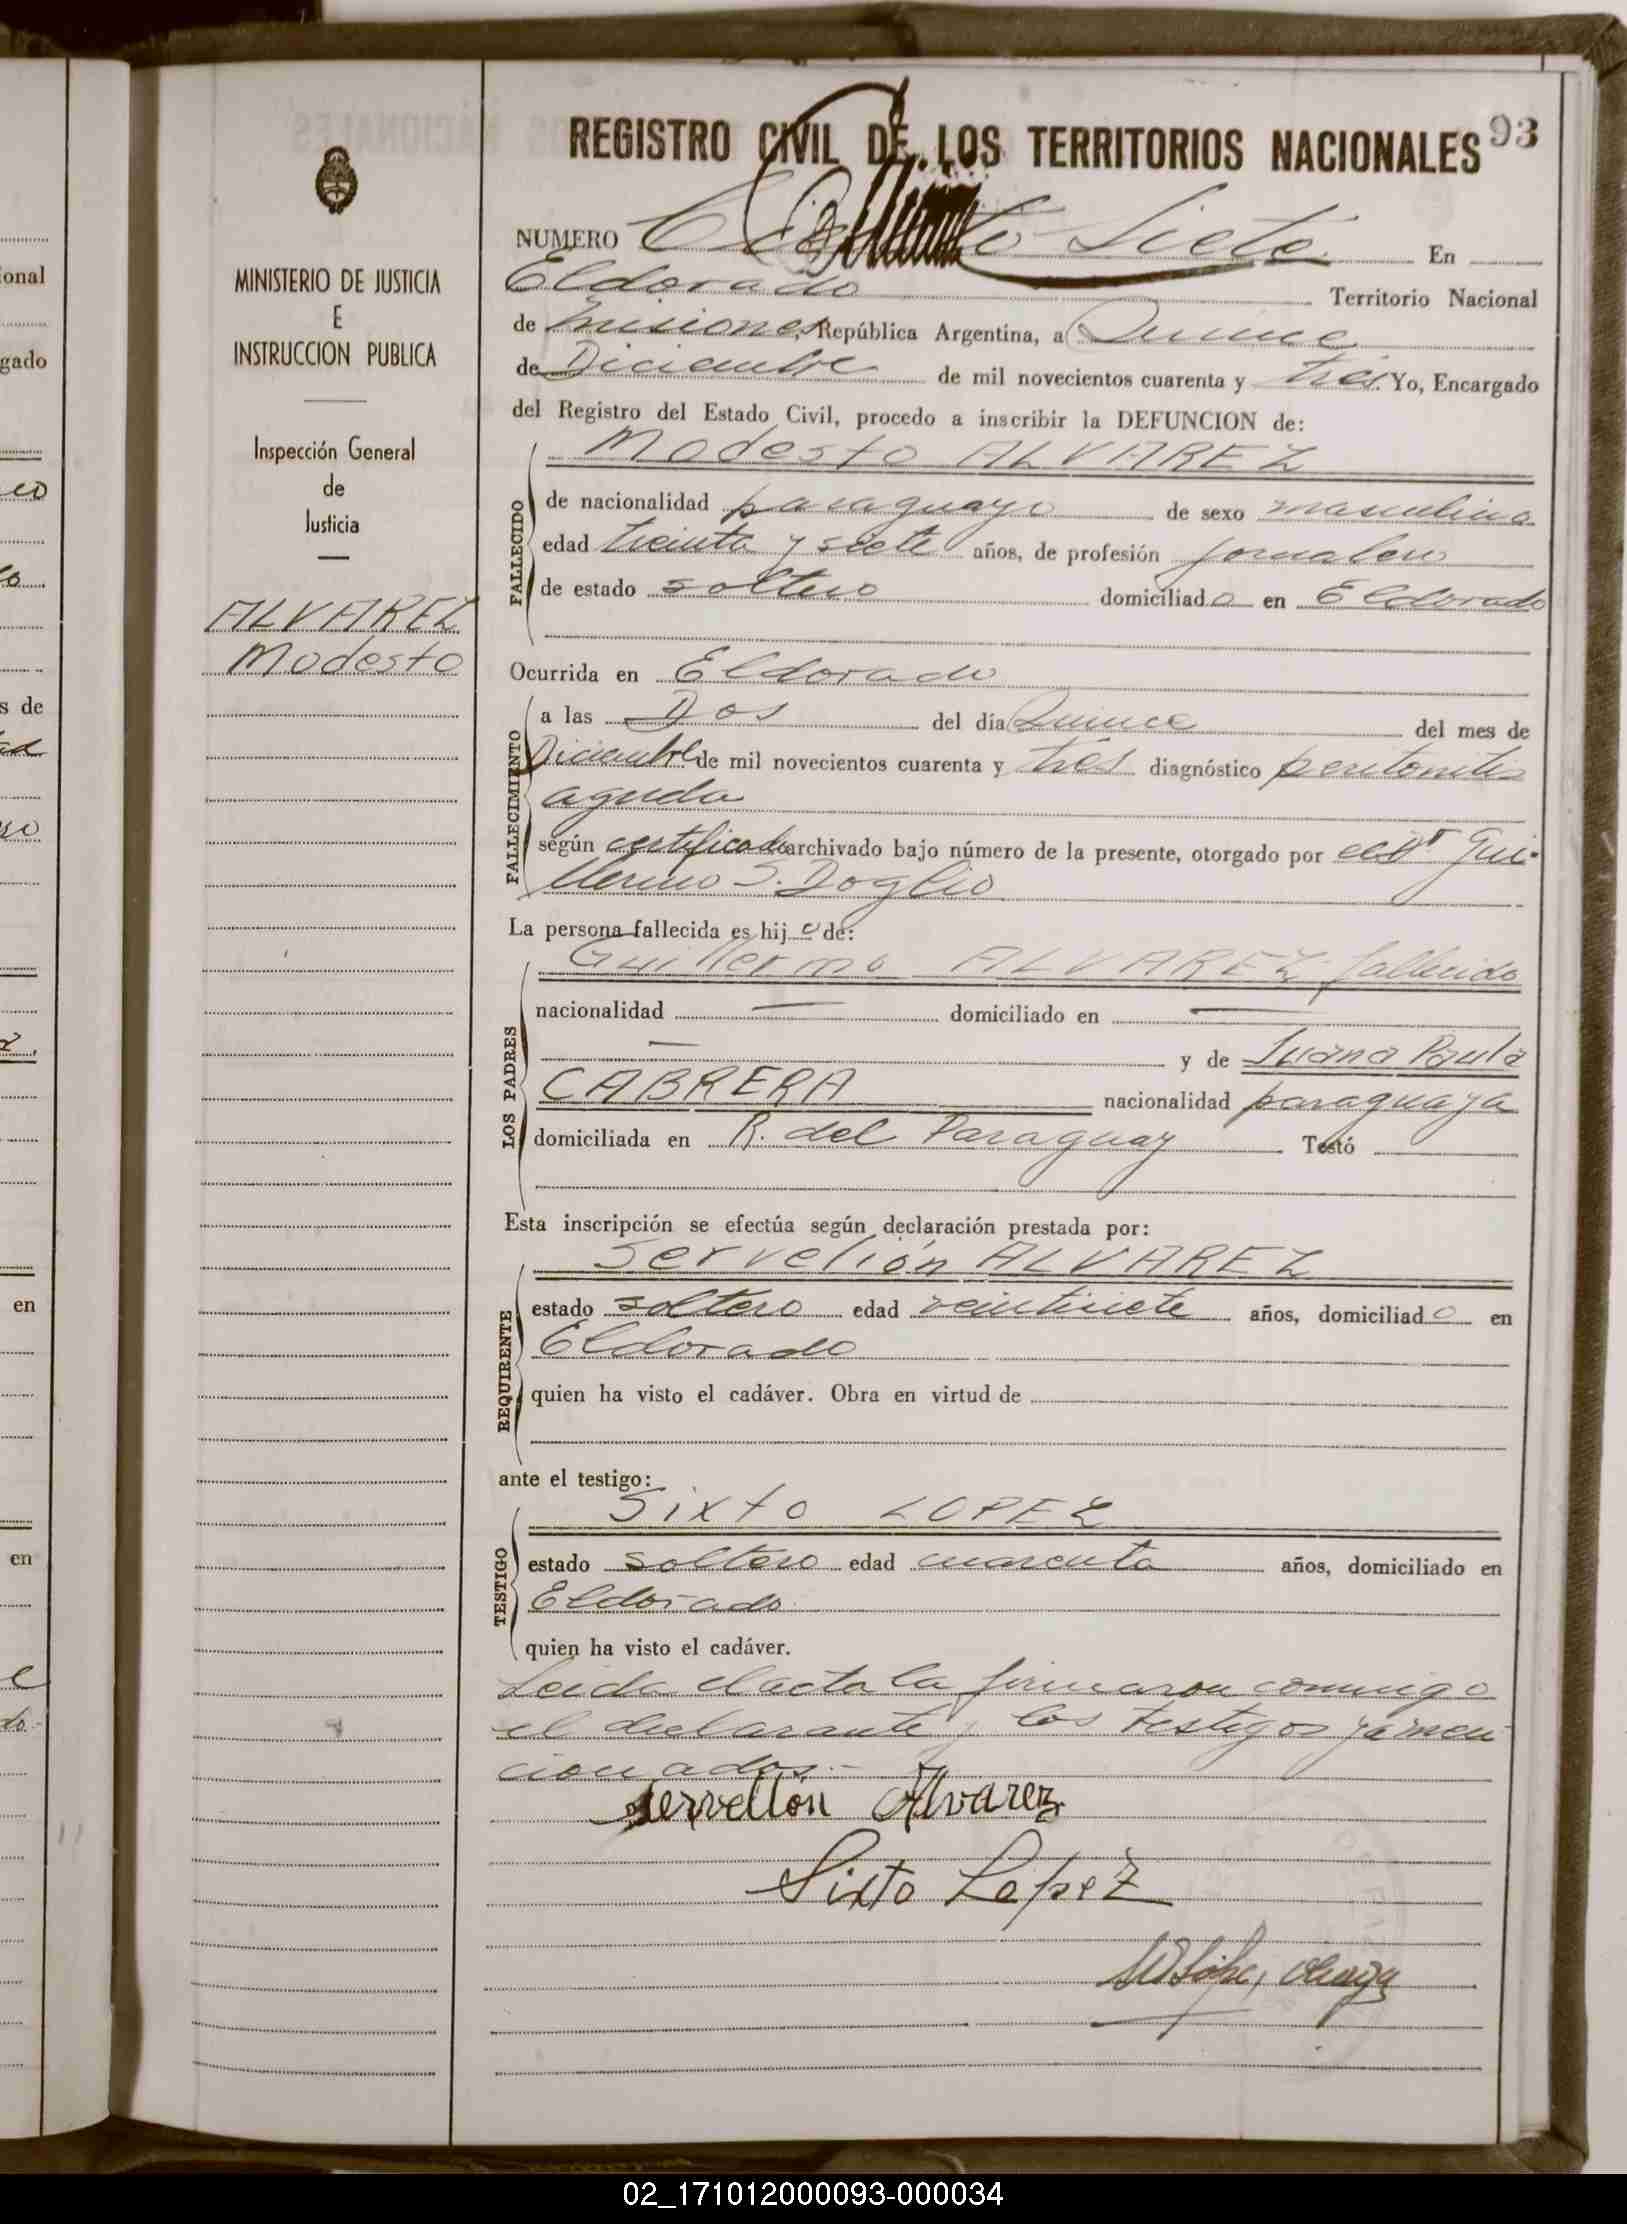 REGISTRO CIVIL DE LOS TERRITORIOS NACIONALES 93
MINISTERIO DE JUSTICIA
E
INSTRUCCION PUBLICA
Inspección General
de
Justicia
ALVAREZ
Modesto
NUMERO Ciento Siete En
Eldorado Territorio Nacional
de Misiones, República Argentina, a Quince
de Diciembre de mil novecientos cuarenta y tres. Yo, Encargado
del Registro del Estado Civil, procedo a inscribir la DEFUNCION de:
Modesto ALVAREZ
FALLECIDO
de nacionalidad paraguayo de sexo masculino
edad treinta y siete años, de profesión jornalero
de estado soltero domiciliado en Eldorado
Ocurrida en Eldorado
FALLECIMIENTO
a las Dos del día Quince del mes de
Diciembre de mil novecientos cuarenta y tres diagnóstico peritonitis
aguda
según certificado archivado bajo número de la presente, otorgado por el Dr Gui-
llermo S. Doglio
La persona fallecida es hijo de:
Guillermo ALVAREZ fallecido
LOS PADRES
nacionalidad — domiciliado en —
— y de Juana Paula
CABRERA nacionalidad paraguaya
domiciliada en R. del Paraguay Testó
Esta inscripción se efectúa según declaración prestada por:
Servelión ALVAREZ
REQUIRENTE
estado soltero edad veintisiete años, domiciliado en
Eldorado
quien ha visto el cadáver. Obra en virtud de
ante el testigo:
Sixto LOPEZ
TESTIGO
estado soltero edad cuarenta años, domiciliado en
Eldorado
quien ha visto el cadáver.
Leida el acta la firmaron conmigo
el declarante y los testigos ya men
cionados.-
servellón Alvarez
Sixto Lopez
02_171012000093-000034